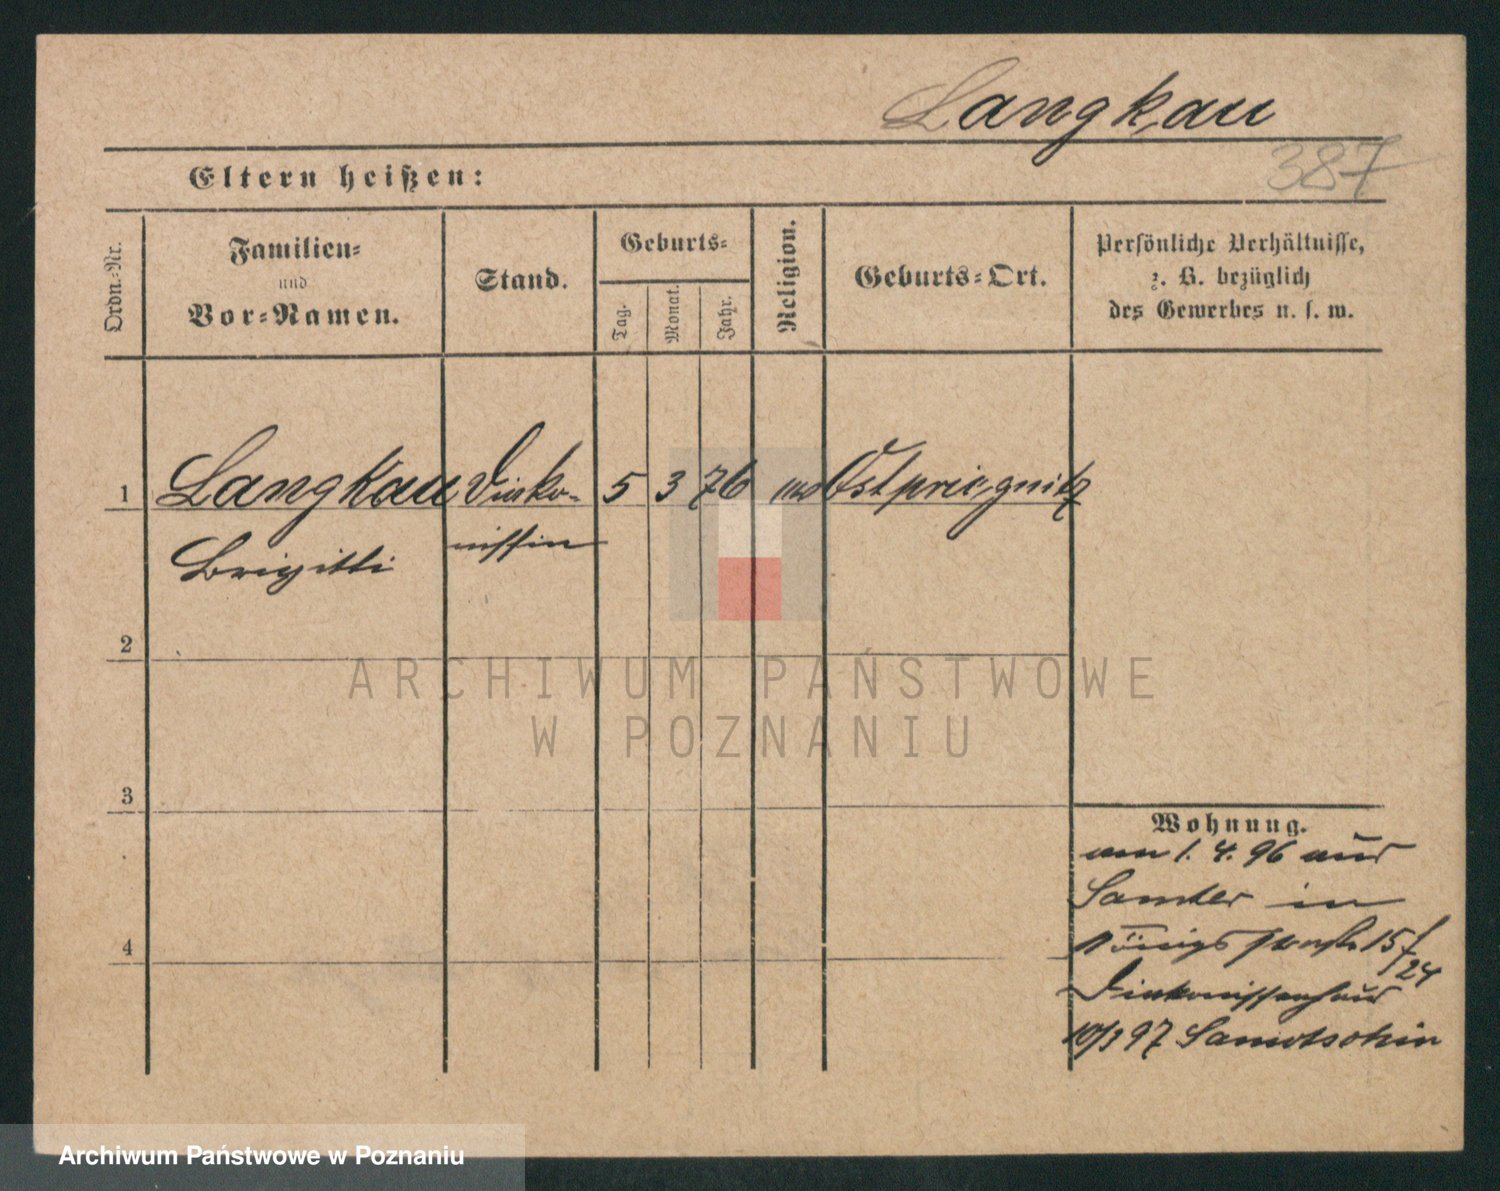 Langkau
387
Eltern heißen:
Ordn.-Nr.
Familien-
und
Vor-Namen.
Stand.
Geburts-
Tag.
Monat.
Jahr.
Religion.
Geburts-Ort.
Persönliche Verhältnisse,
z. B. bezüglich
des Gewerbes u. s. w.
1
Langkau Diako- 5 3 76 Ostpriegnitz
Brigitte nissin
2
ARCHIWUM PAŃSTWOWE
W POZNANIU
3
Wohnung.
am 1. 4. 96 aus
Samter in
Königsstraße 15/24
4
Diakonissenhaus
10/3 97 Samotschin
Archiwum Państwowe w Poznaniu